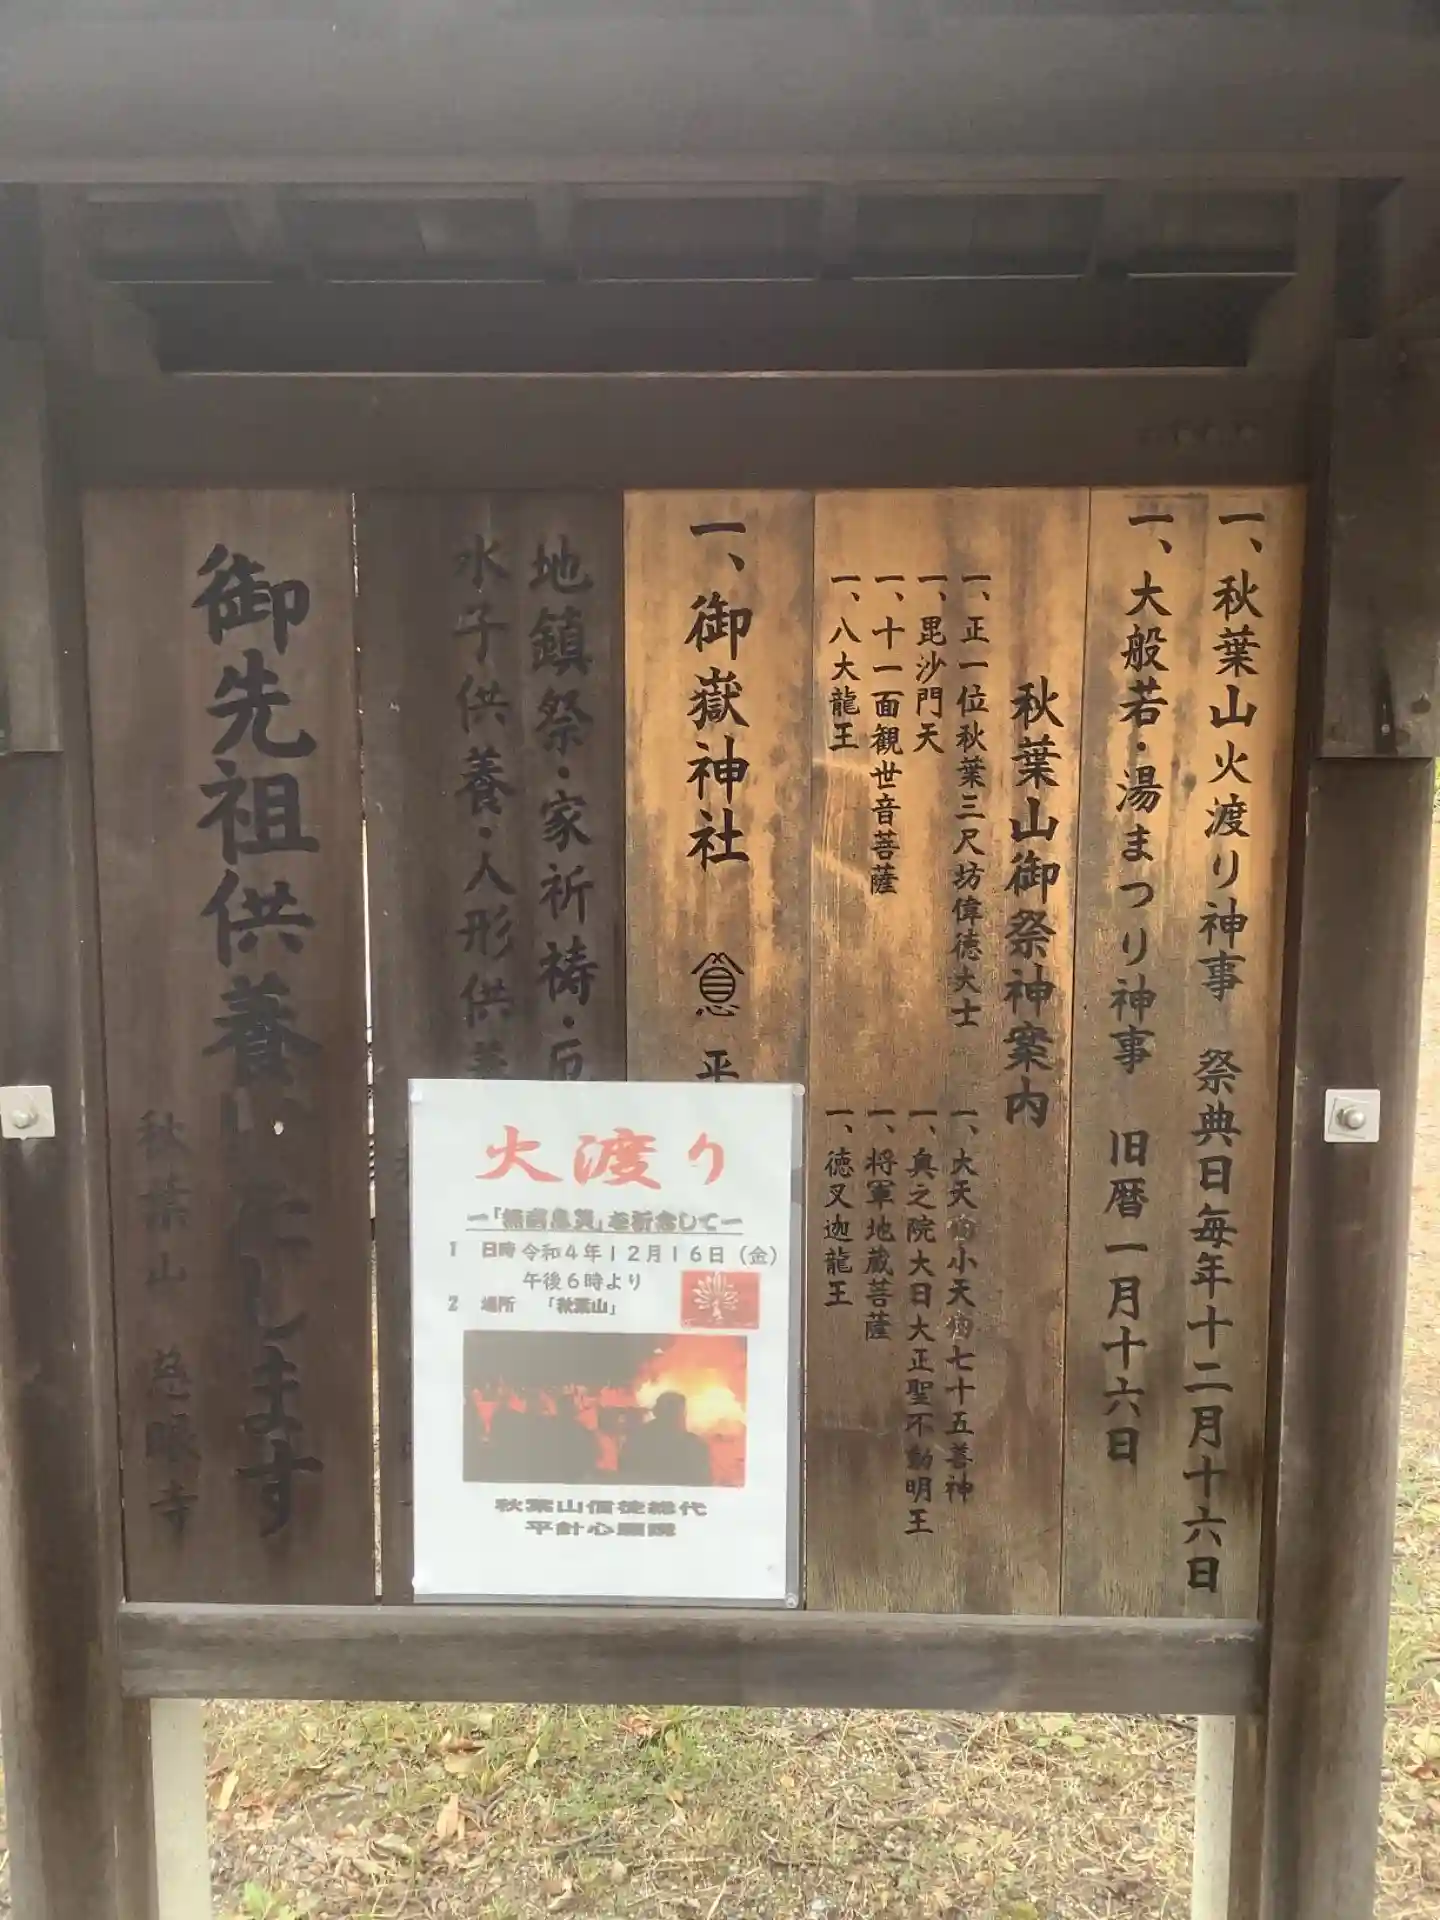 一、秋葉山火渡り神事　祭典日毎年十二月十六日
一、大般若・湯まつり神事　旧暦一月十六日
秋葉山御祭神案内
一、正一位秋葉三尺坊偉徳大士
一、毘沙門天
一、十一面観世音菩薩
一、八大龍王
一、大天狗小天狗七十五善神
一、奥之院大日大正聖不動明王
一、将軍地蔵菩薩
一、徳叉迦龍王
一、御嶽神社　平
地鎮祭・家祈祷・厄
水子供養・人形供養
御先祖供養いたします
秋葉山　慈眼寺
火渡り
ー「無病息災」を祈念してー
1　日時 令和4年12月16日（金）
午後6時より
2　場所　「秋葉山」
秋葉山信徒総代
平針心願講